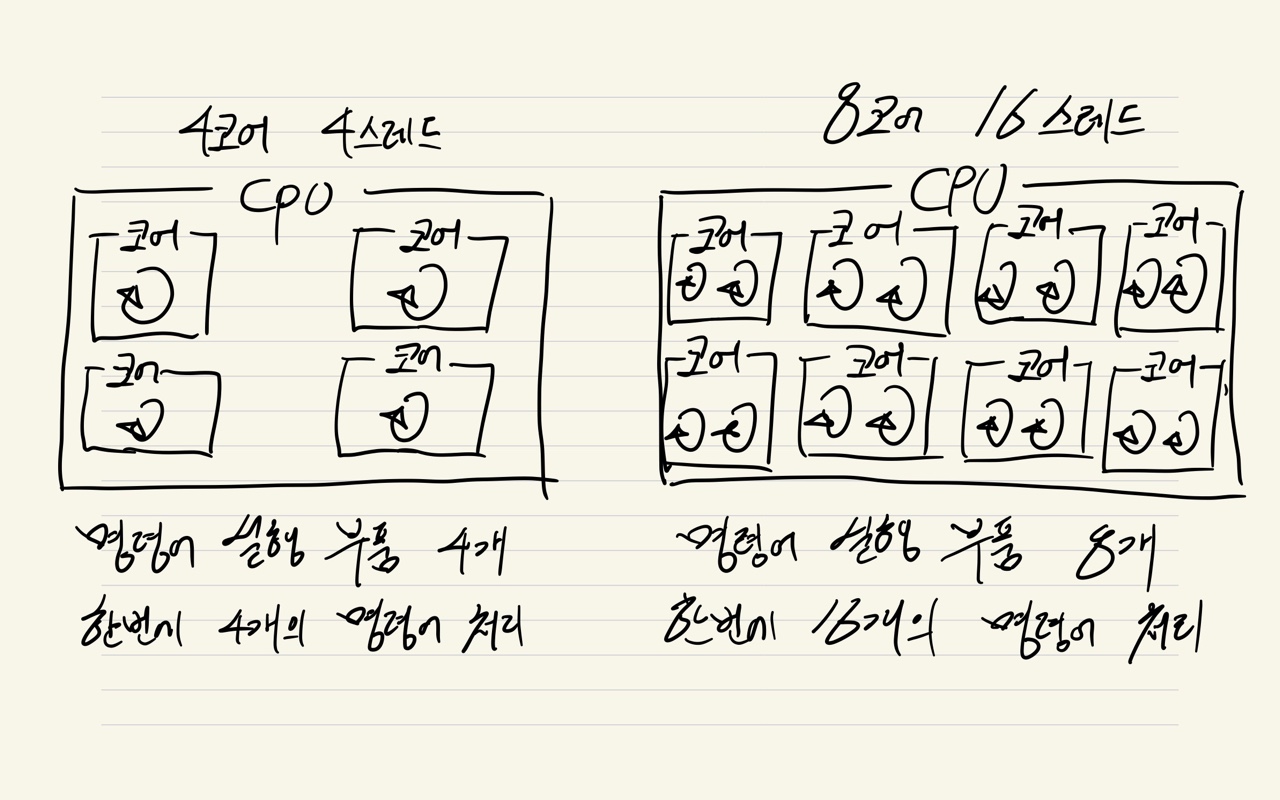 4코어 4스레드
CPU
코어 코어
코어 코어
명령어 실행 부품 4개
한번에 4개의 명령어 처리
8코어 16스레드
CPU
코어 코어 코어 코어
코어 코어 코어 코어
명령어 실행 부품 8개
한번에 16개의 명령어 처리